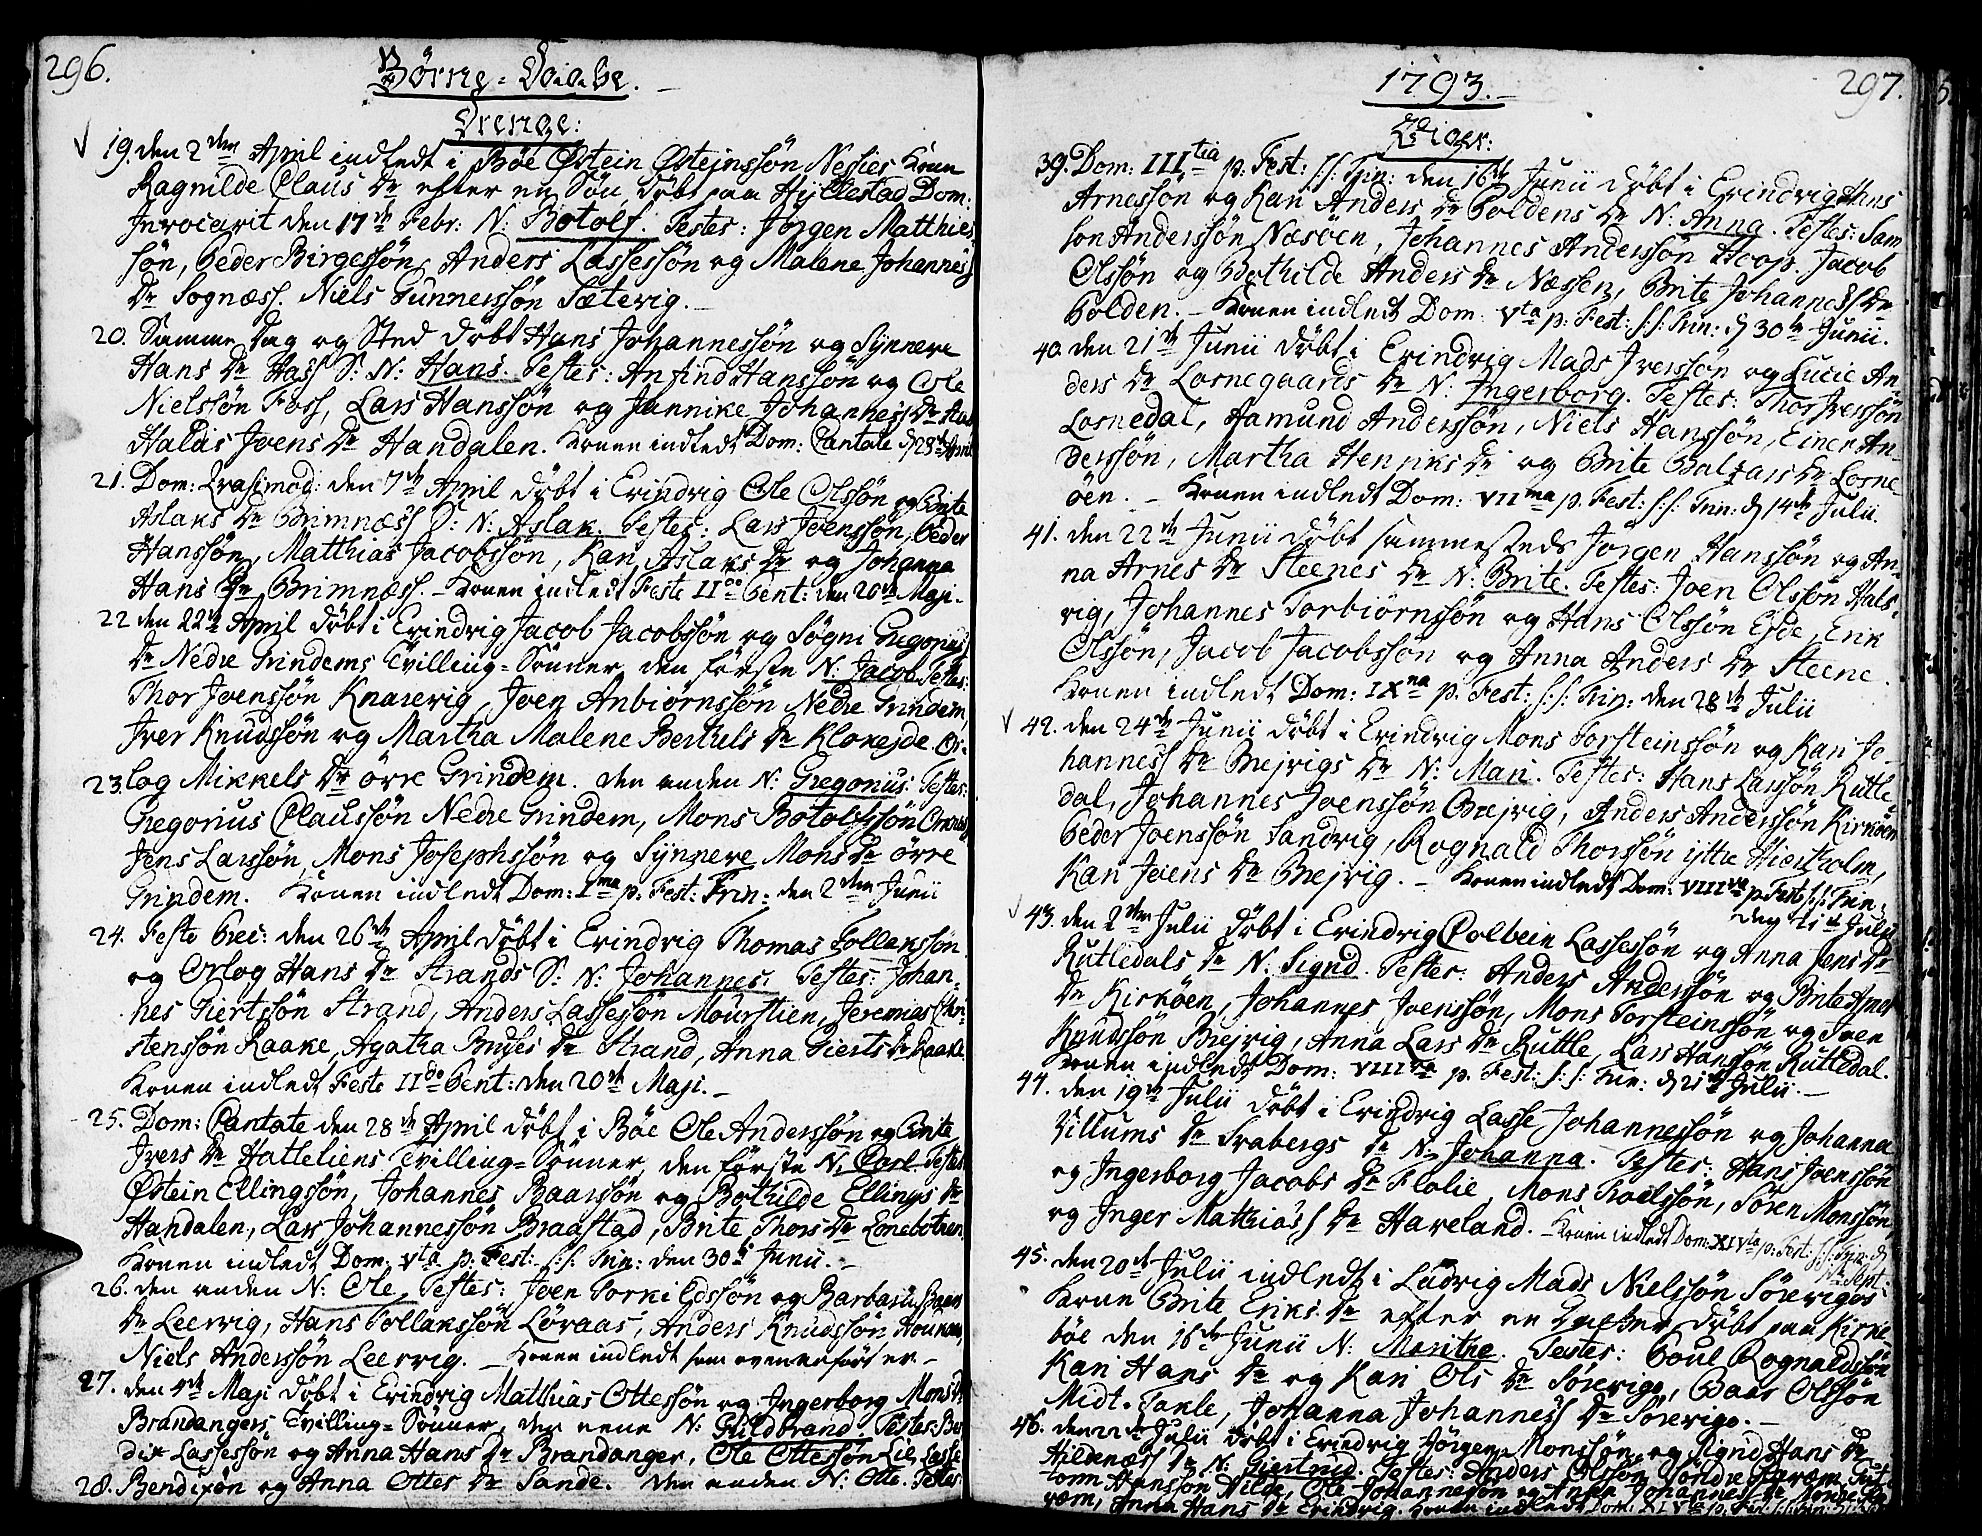 296.
Börne-Daabe.
Drenge:
19. den 2den April indledt i Böe Østein Østeinssön Nessies Kone
Ragnilde Claus Dr efter en Sön, döbt paa Hyllestad Dom:
Invocavit den 17de Febr: N: Botolf. Testes: Jörgen Matthies
sön, Peder Birgessön, Anders Lassessön og Malene Johanness
Dr Sognæss. Niels Gunnerssön Sæterig.
20. Samme Dag og Sted döbt Hans Johannessön og Synneve
Hans Dr Hass S: N: Hans. Testes: Anfind Hanssön og Ole
Nielssön Foss, Lars Hanssön og Jannike Johanness Dr
Halas Joens Dr Handalen. Konen indledt Dom: Cantate d 28de April
21. Dom: Qvasimod: den 7de April döbt i Evindvig Ole Olssön og Brite
Aslaks Dr Brimnæss S: N: Aslak. Testes: Lars Joenssön, Peder
Hanssön, Matthias Jacobssön, Kari Aslaks Dr og Johanna
Hans Dr Brimnæss. Konen indledt Feste IIdo Pent: den 20de Maji.
22 den 22de April döbt i Evindvig Jacob Jacobssön og Sögni Gregorius
Dr Nedre Grindems Tvilling-Sönner, den förste N: Jacob Testes:
Thor Joenssön Knarevig, Joen Anbiörnssön Nedre Grindem,
Iver Knudssön og Martha Malene Berthels Dr Klokejde Or-
23. log Mikkels Dr övre Grindem. den anden N: Gregorius. Testes:
Gregorius Claussön Nedre Grindem, Mons Botolfssön
Jens Larssön, Mons Josephssön og Synneve Mons Dr övre
Grindem. Konen indledt Dom: Ima p: Fest: Trin: den 2den Junii
24. Feste Prec: den 26de April döbt i Evindvig Thomas Follakssön
og Orlog Hans Dr Strands S: N: Johannes. Testes: Johan-
nes Giertssön Strand, Anders Lassessön Mourstien, Jeremias Chri-
stenssön Raake, Agatha Dr Strand, Anna Gierts Dr Raake.
Konen indledt Feste IIdo Pent: den 20de Maji.
25. Dom: Cantate den 28de April döbt i Böe Ole Anderssön og Brite
Ivers Dr Hatteliens Tvilling-Sönner, den förste N: Carl Testes
Østein Ellingssön, Johannes Baarssön og Bothilde Ellings Dr
Handalen, Lars Johannessön Braastad, Brite Thors Dr Lonebotnen.
Konen indledt Dom: Vta p: Fest: S:S: Trin: den 30te Junii.
26. den anden N: Ole, Testes: Joen Torkildssön og Barbara
Dr Leervig, Hans Follakssön Löraas, Anders Knudssön
Niels Anderssön Leervig. Konen indledt som ovenanfört er
27. den 4de Maji döbt i Evindvig Matthias Ottessön og Ingerborg Mons Dr
Brandangers Tvilling-Sönner, den eene N: Hildbrand. Testes: Ben
dix Lassessön og Anna Hans Dr Brandanger, Ole Ottessön Lie, Lasse
28. Bendixön og Anna Ottes Dr Sande. den anden N: Otte. Testes
1793.
297.
Piger:
39. Dom: IIItia p: Fest: S:S: Trin: den 16de Junii döbt i Evindvig Hans
Arnessön og Kari Anders Dr Poldens Dr N: Anna. Testes: Sam
son Anderssön Næsöen, Johannes Anderssön Hoop. Jacob
Olssön og Bothilde Anders Dr Næssen, Brite Johanness Dr
Polden. Konen indledt Dom: Vta p: Fest: S:S: Trin: d 30te Junii.
40. den 21de Junii döbt i Evindvig Mads Iverssön og Lucie An
ders Dr Losnegaards Dr N: Ingerborg. Testes: Thor Iverssön
Losnedal, Aamund Anderssön, Niels Hanssön, Einer An-
derssön, Martha Henriks Dr og Brite Baltzars Dr Losne
öen. Konen indledt Dom: VIIma p: Fest: S:S: Trin: d 14de Julii.
41. den 22de Junii döbt sammesteds Jörgen Hanssön og An-
na Arnes Dr Steenes Dr N: Brite. Testes: Joen Olssön Hals-
vig, Johannes Torbiörnssön og Hans Olssön Ejde, Erik
Olssön, Jacob Jacobssön og Anna Anders Dr Steene.
Konen indledt Dom: IXna p. Fest: S:S: Trin: den 28de Julii
42. den 24de Junii döbt i Evindvig Mons Torsteinssön og Kari Jo-
hanness Dr Brejvigs Dr N: Mari. Testes: Hans Larssön Rutle
dal, Johannes Joenssön Brejvig, Anders Anderssön Kirköen,
Peder Joenssön Sandvig, Rognald Thorssön yttre Hiertholm,
Kari Joens Dr Brejvig. Konen indledt Dom: VIIIva p Fest: S:S: Trin:
den 21de Julii
43. den 2den Julii döbt i Evindvig Colbein Lassessön og Anna Jens Dr
Rutledals Dr N. Sigrid. Testes: Anders Anderssön og Brite
Dr Kirköen, Johannes Joenssön, Mons Torsteinssön og Joen
Knudssön Brejvig, Anna Lars Dr Rutle, Lars Hanssön Rutledal.
Konen indledt Dom: VIIIva p. Fest: S:S: Trin: d 21de Julii.
44. den 19de Julii döbt i Evindvig Lasse Johannessön og Johanna
Villums Dr Svabergs Dr N. Johanna. Testes: Hans Joenssön
og Ingerborg Jacobs Dr Flolie, Mons Troilssön, Sören Monssön,
og Inger Matthiass Dr Haveland. Konen indledt Dom: XIVta p: Fest: S:S: Trin: d
Sept:
45. den 20de Julii indledt i Ladvig Mads Nielssön Sörevigs
Kone Brite Eriks Dr efter en Datter döbt paa Kirke
böe den 16de Junii N: Marithe. Testes: Poul Rognaldssön
Kari Hans Dr og Kari Ols Dr Sörevigs, Baar Olssön
Midt-Tanle, Johanna Johanness Dr Sörevigs.
46. den Julii döbt i Evindvig Jörgen Monssön og Sigrid Hans Dr
Hildenæss Dr N: Giertrud. Testes: Anders Olssön
Hanssön Hilde, Ole Johannessön og Anna Johanness Dr
Anna Hans Dr Evindvig. Konen indledt Dom: XIVta p: Fest: